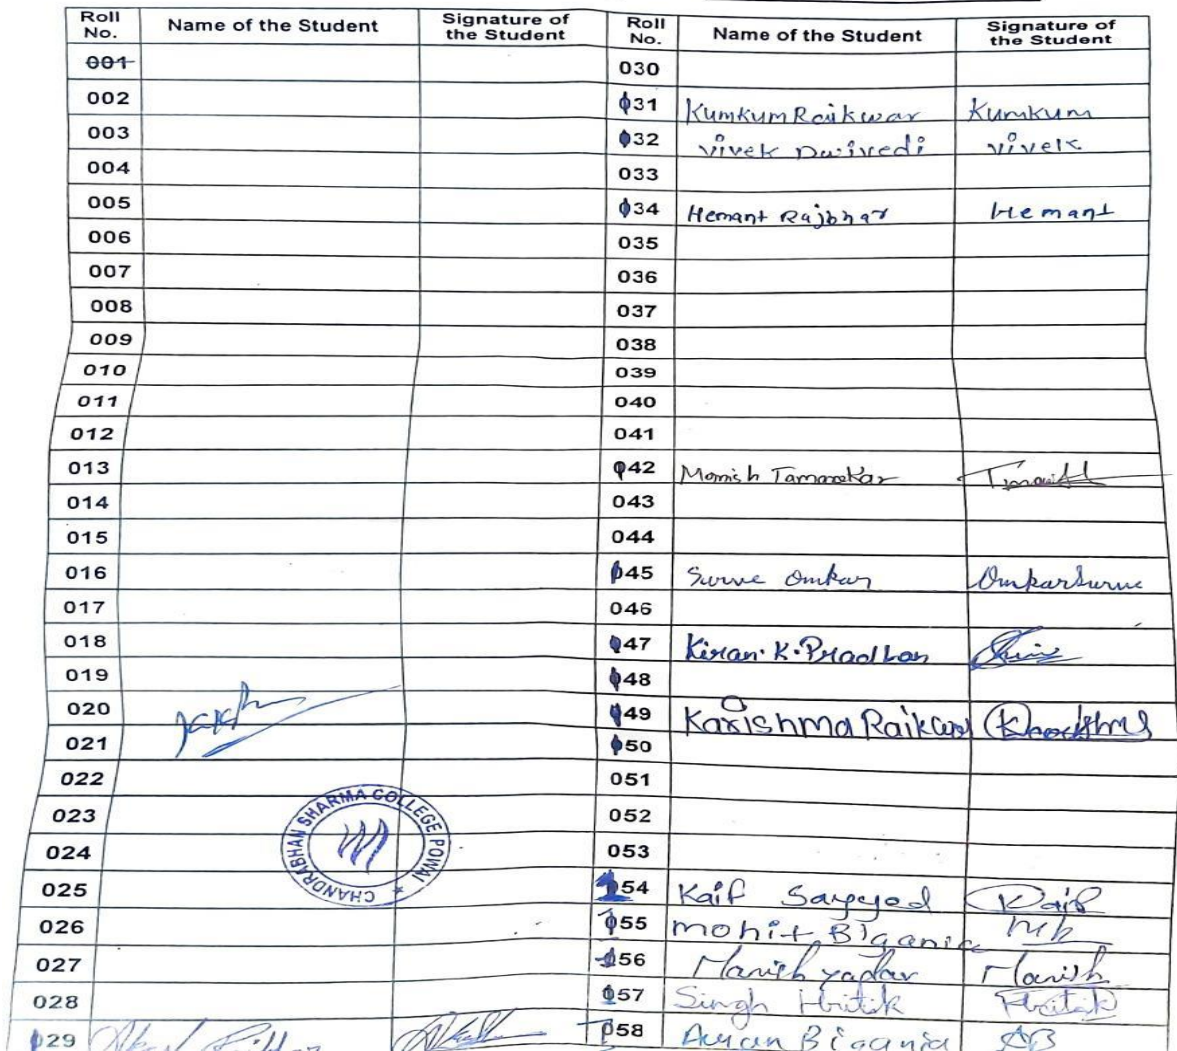 Roll No. Name of the Student Signature of the Student Roll No. Name of the Student Signature of the Student
001 030
002 031 Kumkum Raikwar Kumkum
003 032 Vivek Dwivedi Vivek
004 033
005 034 Hemant Rajbhar Hemant
006 035
007 036
008 037
009 038
010 039
011 040
012 041
013 042
014 043
015 044
016 045 Surve Omkar Omkar Surve
017 046
018 047 Kiran. K. Pradhan
019 048
020 049 Karishma Raikwar
021 050
022 051
023 052
024 053
025 154 Kaif Sayyed Kaif
026 155 mohit Bigania
027 156 Manish yadav Manish
028 157 Singh Hritik Hritik
029 158 Bigania AB
CHANDRABHAN SHARMA COLLEGE POWAI